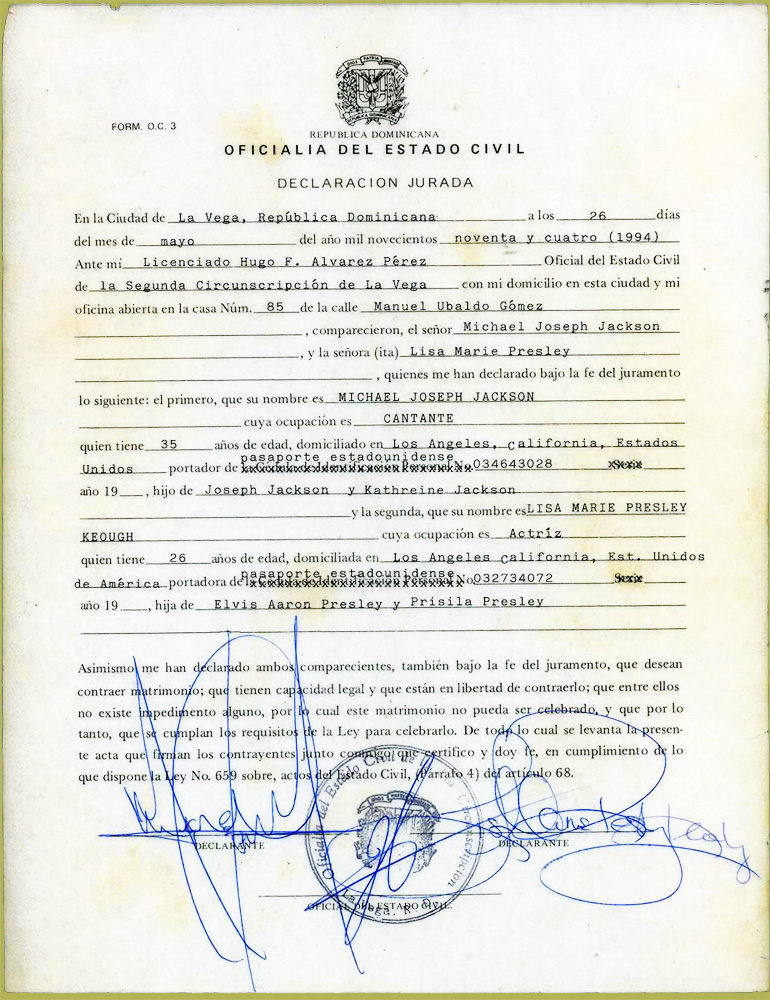 FORM. O.C. 3
REPUBLICA DOMINICANA
OFICIALIA DEL ESTADO CIVIL
DECLARACION JURADA
En la Ciudad de La Vega, República Dominicana a los 26 días
del mes de mayo del año mil novecientos noventa y cuatro (1994)
Ante mí Licenciado Hugo F. Alvarez Pérez Oficial del Estado Civil
de la Segunda Circunscripción de La Vega con mi domicilio en esta ciudad y mi
oficina abierta en la casa Núm. 85 de la calle Manuel Ubaldo Gómez
, comparecieron, el señor Michael Joseph Jackson
, y la señora (ita) Lisa Marie Presley
, quienes me han declarado bajo la fe del juramento
lo siguiente: el primero, que su nombre es MICHAEL JOSEPH JACKSON
cuya ocupación es CANTANTE
quien tiene 35 años de edad, domiciliado en Los Angeles, California, Estados
pasaporte estadounidense
Unidos portador de la Cédula de Identificación Personal No. 034643028 Serie
año 19 , hijo de Joseph Jackson y Kathreine Jackson
y la segunda, que su nombre es LISA MARIE PRESLEY
KEOUGH cuya ocupación es Actríz
quien tiene 26 años de edad, domiciliada en Los Angeles California, Est. Unidos
pasaporte estadounidense
de América portadora de la Cédula de Identificación Personal No 032734072 Serie
año 19 , hija de Elvis Aaron Presley y Prisila Presley
Asimismo me han declarado ambos comparecientes, también bajo la fe del juramento, que desean
contraer matrimonio; que tienen capacidad legal y que están en libertad de contraerlo; que entre ellos
no existe impedimento alguno, por lo cual este matrimonio no pueda ser celebrado, y que por lo
tanto, que se cumplan los requisitos de la Ley para celebrarlo. De todo lo cual se levanta la presen-
te acta que firman los contrayentes junto conmigo, que certifico y doy fe, en cumplimiento de lo
que dispone la Ley No. 659 sobre, actos del Estado Civil, (Párrafo 4) del artículo 68.
DECLARANTE
DECLARANTE
Oficialía del Estado Civil de Circunscripcion
La Vega, R. D.
OFICIAL DEL ESTADO CIVIL